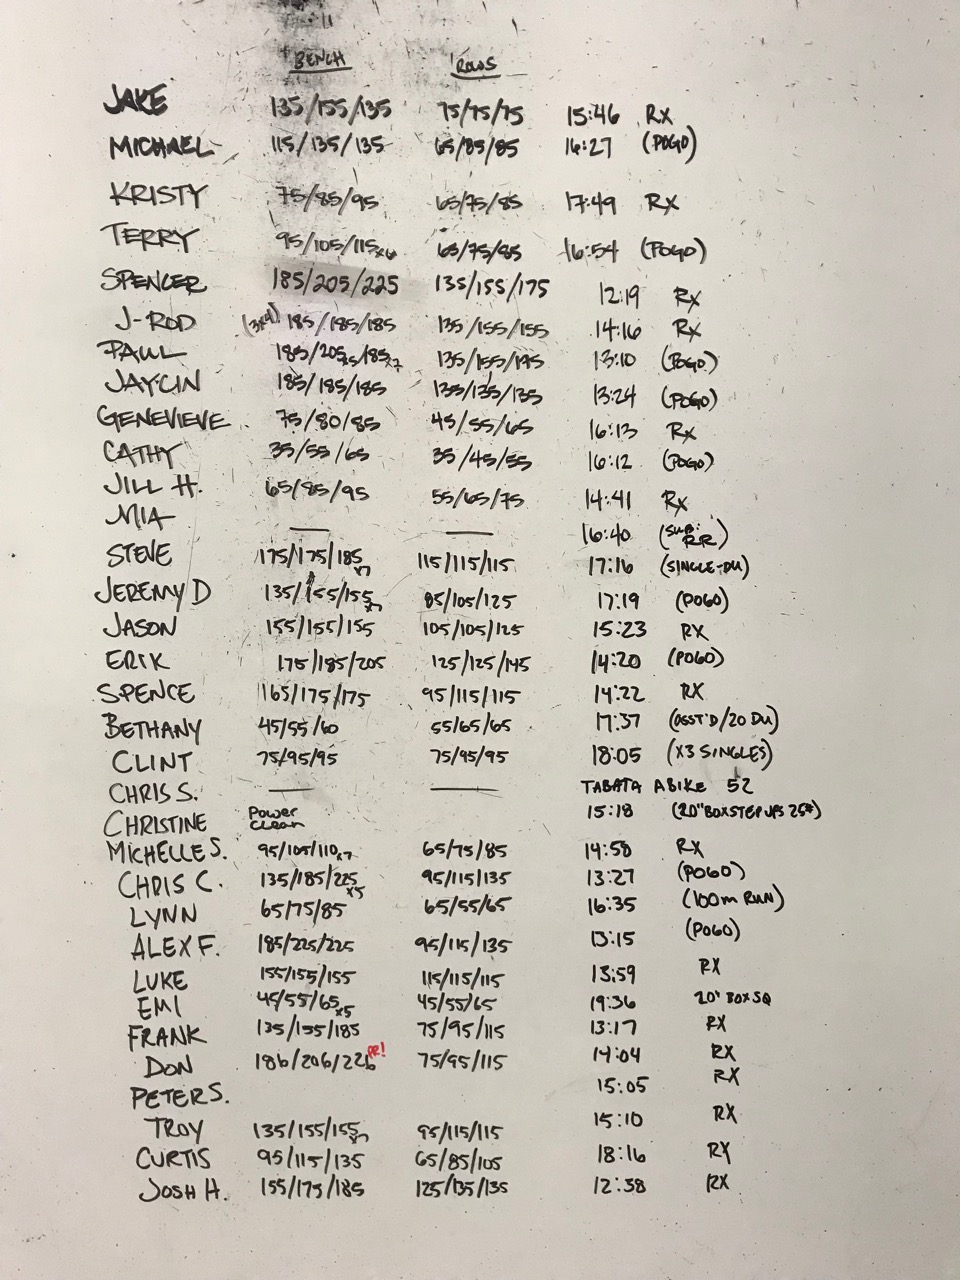 BENCH ROWS
JAKE 135/155/135 75/75/75 15:46 RX
MICHAEL 115/135/135 65/85/85 16:27 (POGO)
KRISTY 75/85/95 65/75/85 17:49 RX
TERRY 95/105/115x6 65/75/85 16:54 (POGO)
SPENCER 185/205/225 135/155/175 12:19 RX
J-ROD (3x4) 185/185/185 135/155/155 14:16 RX
PAUL 185/205x5/185x7 135/155/195 13:10 (POGO)
JAYCIN 185/185/185 135/135/135 13:24 (POGO)
GENEVIEVE 75/80/85 45/55/65 16:13 RX
CATHY 35/55/65 35/45/55 16:12 (POGO)
JILL H. 65/85/95 55/65/75 14:41 RX
MIA — — 16:40 (SUB: RR)
STEVE 175/175/185x7 115/115/115 17:16 (SINGLE-DU)
JEREMY D 135/155/155x7 85/105/125 17:19 (POGO)
JASON 155/155/155 105/105/125 15:23 RX
ERIK 175/185/205 125/125/145 14:20 (POGO)
SPENCE 165/175/175 95/115/115 14:22 RX
BETHANY 45/55/60 55/65/65 17:37 (ASST'D/20 DU)
CLINT 75/95/95 75/95/95 18:05 (X3 SINGLES)
CHRIS S. — — TABATA ABIKE 52
CHRISTINE POWER CLEAN 15:18 (20" BOX STEP UPS 25#)
MICHELLE S. 95/105/110x7 65/75/85 14:58 RX
CHRIS C. 135/185/225x5 95/115/135 13:27 (POGO)
LYNN 65/75/85 65/55/65 16:35 (100m RUN)
ALEX F. 185/225/225 95/115/135 13:15 (POGO)
LUKE 155/155/155 115/115/115 13:59 RX
EMI 45/55/65x5 45/55/65 19:36 20" BOX SQ
FRANK 135/155/185 75/95/115 13:17 RX
DON 186/206/226 PR! 75/95/115 14:04 RX
PETER S. 15:05 RX
TROY 135/155/155x7 95/115/115 15:10 RX
CURTIS 95/115/135 65/85/105 18:16 RX
JOSH H. 155/175/185 125/135/135 12:38 RX